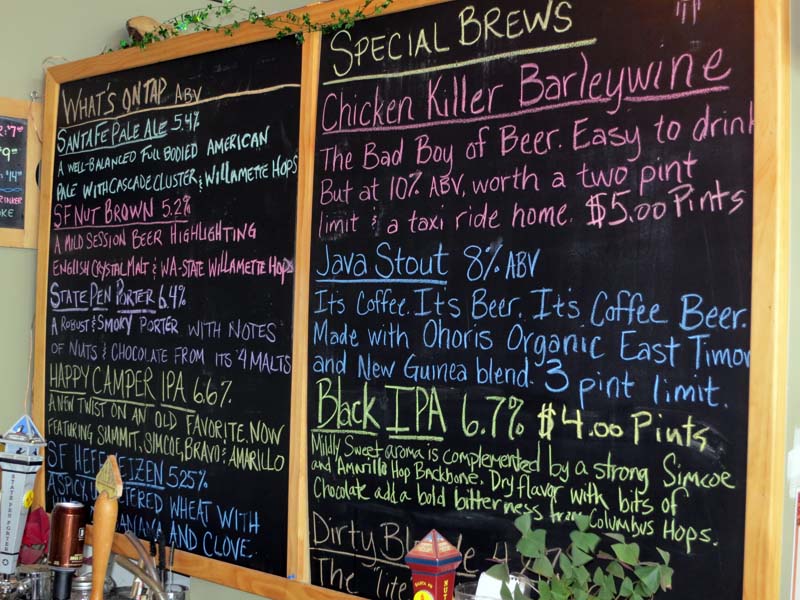 WHAT'S ON TAP ABV
SANTA FE PALE ALE 5.4%
A WELL-BALANCED FULL BODIED AMERICAN
PALE WITH CASCADE CLUSTER & WILLAMETTE HOPS
SF NUT BROWN 5.2%
A MILD SESSION BEER HIGHLIGHTING
ENGLISH CRYSTAL MALT & WA-STATE WILLAMETTE HOPS
STATE PEN PORTER 6.4%
A ROBUST & SMOKY PORTER WITH NOTES
OF NUTS & CHOCOLATE FROM ITS 4 MALTS
HAPPY CAMPER IPA 6.6%
A NEW TWIST ON AN OLD FAVORITE. NOW
FEATURING SUMMIT, SIMCOE, BRAVO & AMARILLO
SF HEFEWEIZEN 5.25%
A SPICY, UNFILTERED WHEAT WITH
BANANA AND CLOVE.
SPECIAL BREWS
Chicken Killer Barleywine
The Bad Boy of Beer. Easy to drink
But at 10% ABV, worth a two pint
limit & a taxi ride home. $5.00 Pints
Java Stout 8% ABV
Its Coffee. Its Beer. Its Coffee Beer.
Made with Ohoris Organic East Timor
and New Guinea blend. 3 pint limit.
Black IPA 6.7% $4.00 Pints
Mildly Sweet aroma is complemented by a strong Simcoe
and Amarillo Hop Backbone. Dry flavor with bits of
Chocolate add a bold bitterness from Columbus Hops.
Dirty Blonde 4
The "lite
STATE PEN PORTER
NUT